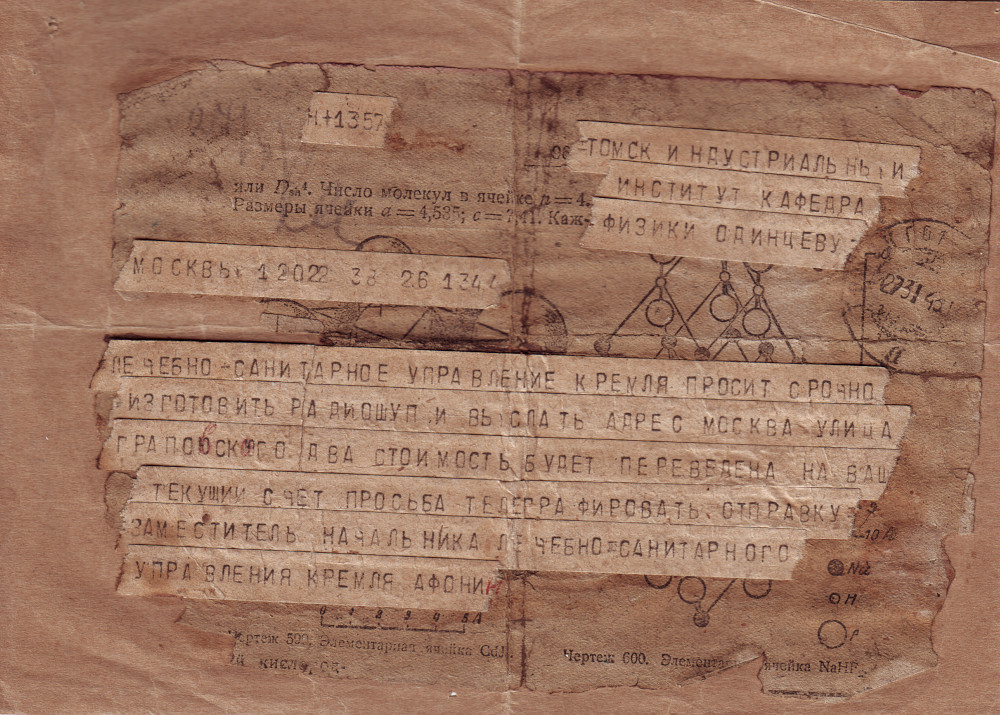 Н+1357
ТОМСК ИНДУСТРИАЛЬНЫИ
ИНСТИТУТ КАФЕДРА
ФИЗИКИ ОДИНЦЕВУ
или Число молекул в ячейке n = 4.
Размеры ячейки a = 4,535; c = Каж-
МОСКВЫ 12022 38 26 1344
ЛЕЧЕБНО-САНИТАРНОЕ УПРАВЛЕНИЕ КРЕМЛЯ ПРОСИТ СРОЧНО
ИЗГОТОВИТЬ РАДИОШУП И ВЫСЛАТЬ АДРЕС МОСКВА УЛИЦА
ГРАНОВСКОГО ДВА СТОИМОСТЬ БУДЕТ ПЕРЕВЕДЕНА НА ВАШ
ТЕКУЩИИ СЧЕТ ПРОСЬБА ТЕЛЕГРАФИРОВАТЬ ОТПРАВКУ
ЗАМЕСТИТЕЛЬ НАЧАЛЬНИКА ЛЕЧЕБНО=САНИТАРНОГО
УПРАВЛЕНИЯ КРЕМЛЯ АФОНИН
Na
H
F
0 1 2 3 4 5Å
Чертеж 599. Элементарная ячейка CdJ
Чертеж 600. Элементарная ячейка NaHF